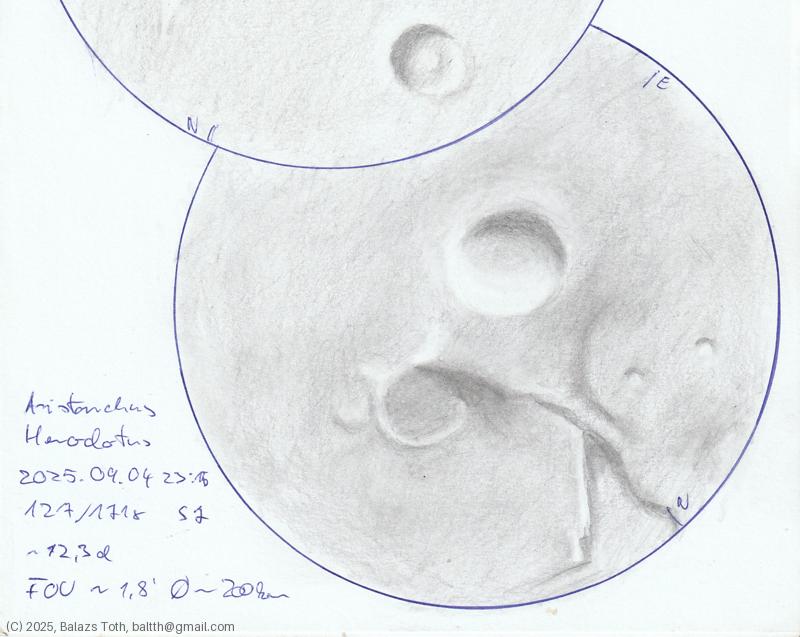 N
E
Aristarchus
Herodotus
2025.09.04 23:15
127/171x S7
~12,3d
FOV ~ 1,8' Ø ~ 200km
N
(C) 2025, Balazs Toth, baltth@gmail.com